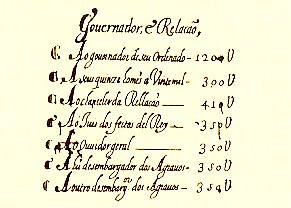 Governador, e Relação,
Ao governador de seu Ordenado - 1200U
A seus quinze homẽs a Vinte mil - 300U
Ao chanseler da Rellação — 410U
Ao Juis dos feitos del Rey — 350U
Ao Ouvidor geral — 350U
A hũ desembargador dos Agravos - 350U
A outro desembargᵒʳ dos Agravos - 350U